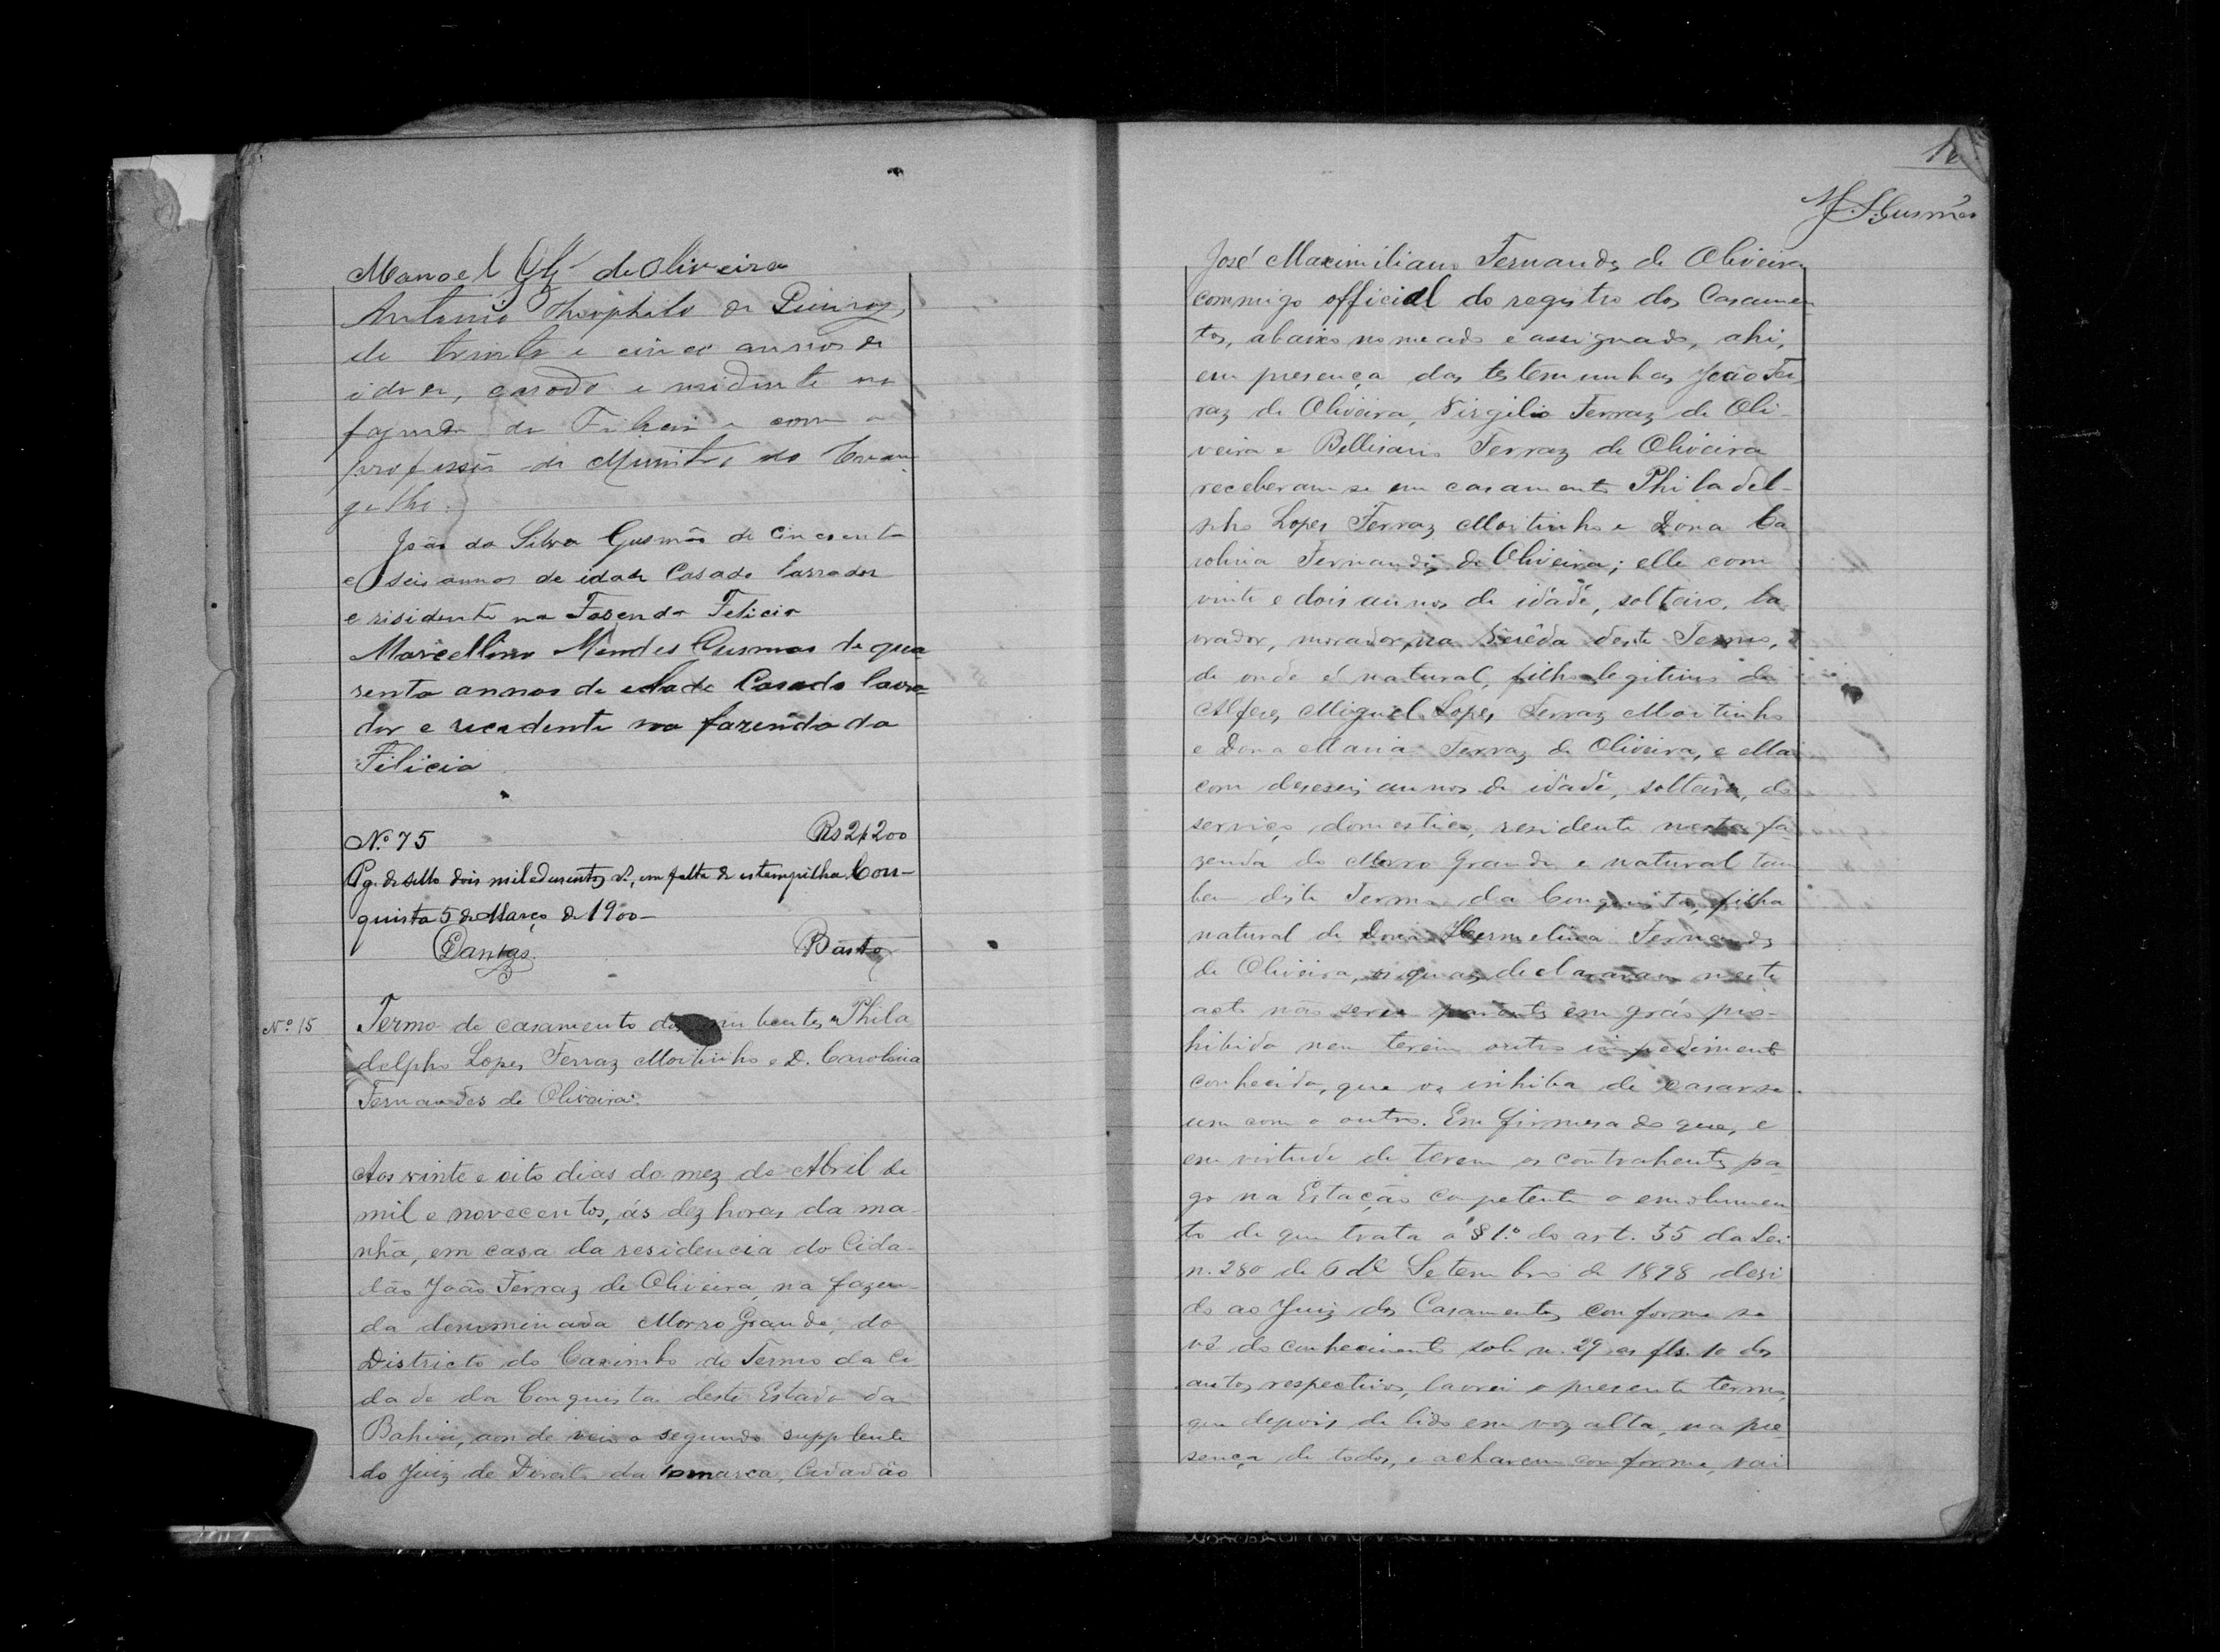 Manoel de Oliveira
Antonio Theophilo de Queiroz,
de trinta e cinco annos de
idade, casado e residente na
fazenda da Felicia e com a
professão de Ministro do Evan
gelho.
João da Silva Gusmão de cincoenta
e seis annos de idade Casado larrador
e risidente na Fazenda Felicia
Marcellino Mendes Gusmao de qua
renta annos de edade Casado lavra
dor e recedente na fazenda da
Filicia
Nº 75 Rs 2$200
Pg. de sello dois mil e duzentos rs., em falta de estampilha. Con-
quista 5 de Março de 1900-
Dantas Bastos
Nº 15
Termo de casamento dos Phila
delpho Lopes Ferraz Moitinho e D. Carolina
Fernandes de Oliveira.
Aos vinte e oito dias do mez de Abril de
mil e novecentos, ás dez horas da ma
nhã, em casa da residencia do Cida-
dão João Ferraz de Oliveira, na fazen-
da denominada Morro Grande, do
Districto do do Termo da Ci
dade da Conquista deste Estado da
Bahia, aonde veio o segundo supplente
do Juiz de Direito da comarca, Cidadão
16
M. S. Gusmão
José Maximiliano Fernandes de Oliveira
commigo official do registro dos Casamen
tos, abaixo nomeado e assignado, ahi,
em presença das testemunhas João Fer
raz de Oliveira, Virgilio Ferraz de Oli-
veira e Bellisario Ferraz de Oliveira
receberam-se em casamento Philadel-
pho Lopes Ferraz Moitinho e Dona Ca
rolina Fernandes de Oliveira; elle com
vinte e dois annos de idade, solteiro, la
vrador, morador na deste Termo,
de onde é natural, filho legitimo do
Alferes Miguel Lopes Ferraz Moitinho
e Dona Maria Ferraz de Oliveira, e ella
com deseseis annos de idade, solteira, do
serviço domestico, residente nesta fa
zenda do Morro Grande e natural tam
bem deste Termo da Conquista, filha
natural de Dona Hermelina Fernandes
de Oliveira, os quaes declararam neste
acto não serem parentes em gráo pro-
hibido nem terem outro impedimento
conhecido, que os inhiba de casar-se
um com o outro. Em firmesa do que, e
em virtude de terem os contrahentes pa
go na Estação competente o emolumen
to de que trata o § 1.º do art. 55 da Lei
n. 280 de 6 de Setembro de 1898 devi
do ao Juiz dos Casamentos conforme se
vê do conhecimento sob n. 29 as fls. 10 dos
autos respectivos, lavrei o presente termo,
que depois de lido em voz alta, na pre
sença de todos, e acharem conforme, vai